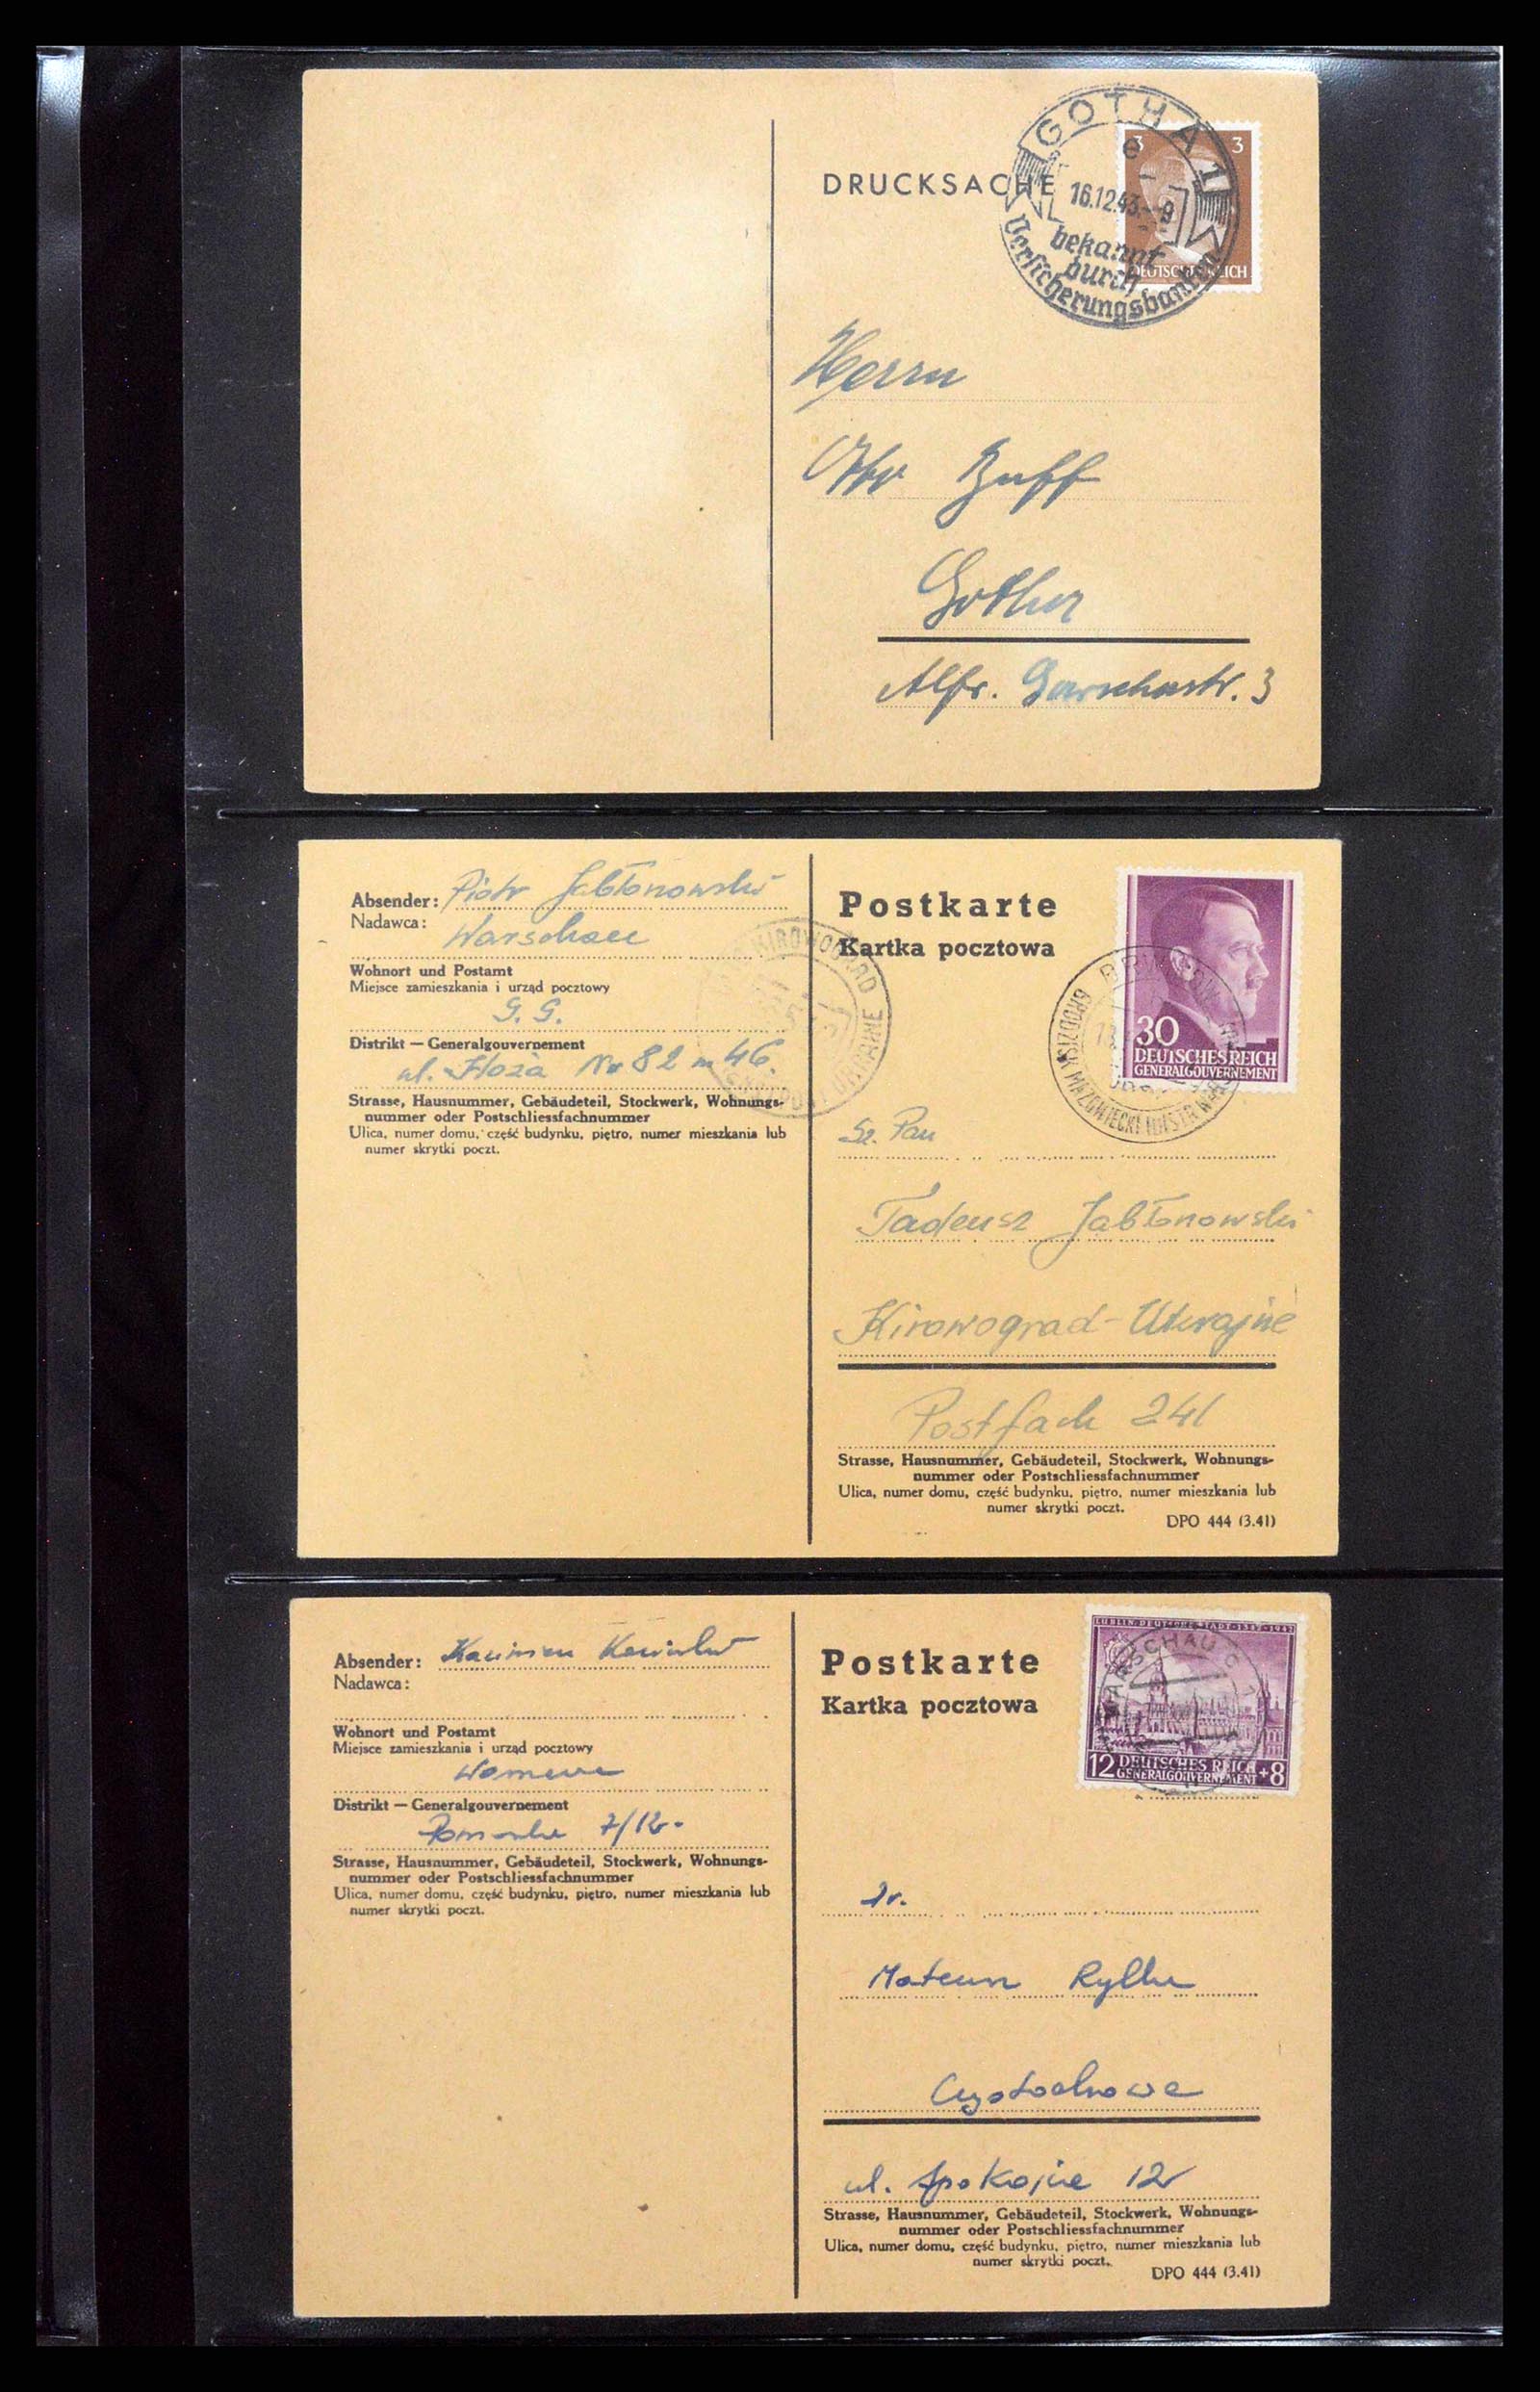 GOTHA 1
e
16.12.43.--9
bekannt
durch
Versicherungsbanken
3 3
DEUTSCHES REICH
DRUCKSACHE
Herrn
Otto Buff
Gotha
Alfr. str. 3
Absender: Piotr Jabłonowski
Nadawca:
Warschau
Wohnort und Postamt
Miejsce zamieszkania i urząd pocztowy
G. G.
Distrikt — Generalgouvernement
ul. Hoża Nr 82 m 46.
Strasse, Hausnummer, Gebäudeteil, Stockwerk, Wohnungs-
nummer oder Postschliessfachnummer
Ulica, numer domu, część budynku, piętro, numer mieszkania lub
numer skrytki poczt.
KIROWOGRAD
UKRAINE
Postkarte
Kartka pocztowa
30
DEUTSCHES REICH
GENERALGOUVERNEMENT
GRODZISK MAZOWIECKI
Sz. Pan
Tadeusz Jabłonowski
Kirowograd-Ukrajne
Postfach 241
Strasse, Hausnummer, Gebäudeteil, Stockwerk, Wohnungs-
nummer oder Postschliessfachnummer
Ulica, numer domu, część budynku, piętro, numer mieszkania lub
numer skrytki poczt.
DPO 444 (3.41)
Absender:
Nadawca:
Wohnort und Postamt
Miejsce zamieszkania i urząd pocztowy
Distrikt — Generalgouvernement
7/12.
Strasse, Hausnummer, Gebäudeteil, Stockwerk, Wohnungs-
nummer oder Postschliessfachnummer
Ulica, numer domu, część budynku, piętro, numer mieszkania lub
numer skrytki poczt.
Postkarte
Kartka pocztowa
LUBLIN, DEUTSCHE STADT · 1342-1942
WARSCHAU C 1
12 DEUTSCHES REICH +8
GENERALGOUVERNEMENT
Mateusz
ul. Spokojna 12
Strasse, Hausnummer, Gebäudeteil, Stockwerk, Wohnungs-
nummer oder Postschliessfachnummer
Ulica, numer domu, część budynku, piętro, numer mieszkania lub
numer skrytki poczt.
DPO 444 (3.41)